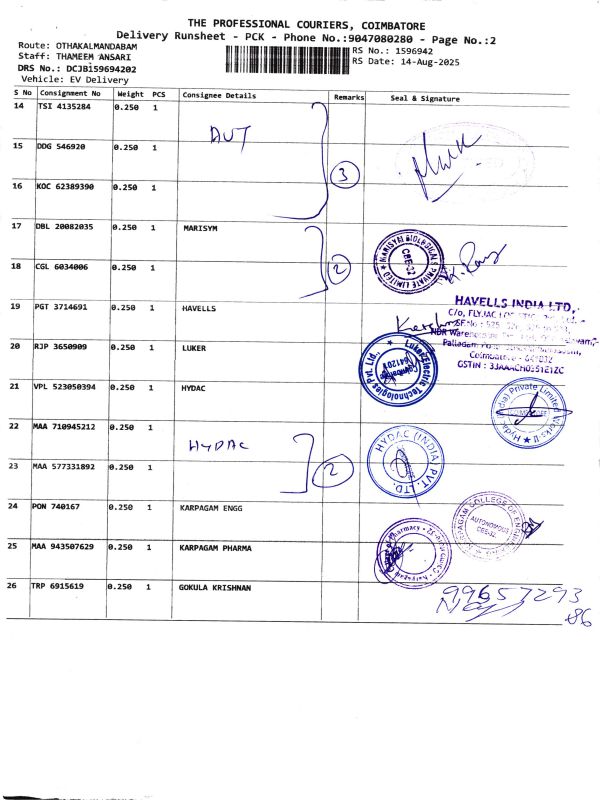 THE PROFESSIONAL COURIERS, COIMBATORE
Delivery Runsheet - PCK - Phone No.:9047080280 - Page No.:2
Route: OTHAKALMANDABAM
RS No.: 1596942
Staff: THAMEEM ANSARI
RS Date: 14-Aug-2025
DRS No.: DCJBi59694202
Vehicle: EV Delivery
S No Consignment No Weight PCS Consignee Details Remarks Seal & Signature
14 TSI 4135284 0.250 1
AVT
15 DDG 546920 0.250 1
3
16 KOC 62389390 0.250 1
17 DBL 20082035 0.250 1 MARISYM
MARISYM BIOLOGICALS PRIVATE LIMITED
CBE-32
2
18 CGL 6034006 0.250 1
19 PGT 3714691 0.250 1 HAVELLS
HAVELLS INDIA LTD,
Coimbatore - 641032
20 RJP 3650909 0.250 1 LUKER
Luker Electric Technologies Pvt. Ltd.,
Coimbatore
21 VPL 523050394 0.250 1 HYDAC
Hydac (India) Private Limited
22 MAA 710945212 0.250 1
HYDAC
HYDAC (INDIA) PVT. LTD.
2
23 MAA 577331892 0.250 1
24 PON 740167 0.250 1 KARPAGAM ENGG
KARPAGAM COLLEGE OF
AUTONOMOUS
CBE-32
25 MAA 943507629 0.250 1 KARPAGAM PHARMA
Pharmacy
26 TRP 6915619 0.250 1 GOKULA KRISHNAN
99657293
86